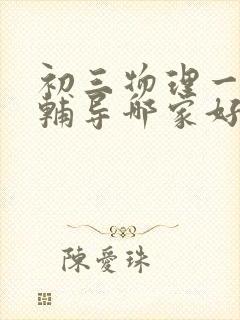 初三物理一
辅导哪家好
陳愛珠